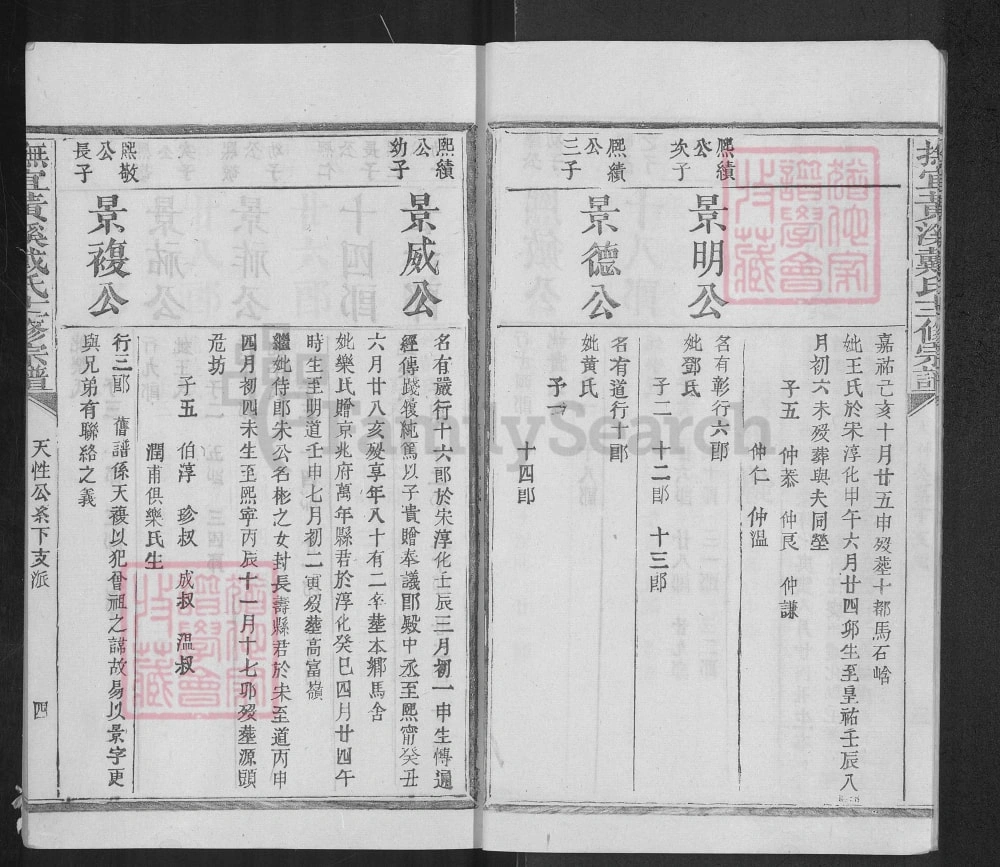 撫宜黃溪戴氏三修宗譜
嘉祐己亥十月廿五申歿葬十都馬石啥
妣王氏於宋淳化甲午六月廿四卯生至皇祐壬辰八
月初六未歿葬與夫同塋
子五 仲恭 仲良 仲謙
仲仁 仲溫
熈績
公
次子
景明公
名有彰行六郎
妣鄧氏
子二 十二郎 十三郎
熈績
公
三子
景德公
名有道行十郎
妣黃氏
子一
十四郎
熈績
公
幼子
景威公
名有嚴行十六郎於宋淳化壬辰三月初一申生愽通
經傳踐履純篤以子貴贈奉議郎殿中丞至熙甯癸丑
六月廿八亥歿享年八十有二辛葬本鄉馬舍
妣樂氏贈京兆府萬年縣君於淳化癸巳四月廿四午
時生至明道壬申七月初二寅歿葬高富嶺
繼妣侍郎朱公名彬之女封長壽縣君於宋至道丙申
四月初四未生至熙寧丙辰十一月十七卯歿葬源頭
坊
子五 伯淳 珍叔 成叔 溫叔
潤甫俱樂氏生
熈敬
公
長子
景複公
行三郎 舊譜係天複以犯曾祖之諱故易以景字更
與兄弟有聯絡之義
撫宜黃溪戴氏三修宗譜
天性公系下支派
四
譜學會
收藏
譜學會
收藏
FamilySearch